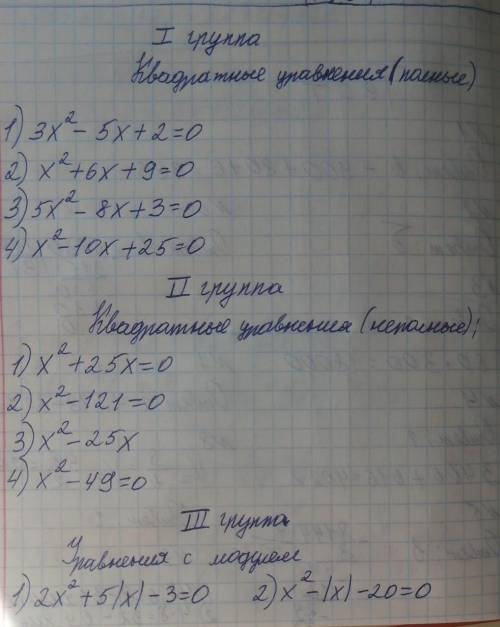 I группа
Квадратные уравнения (полные)
1) 3x² - 5x + 2 = 0
2) x² + 6x + 9 = 0
3) 5x² - 8x + 3 = 0
4) x² - 10x + 25 = 0
II группа
Квадратные уравнения (неполные);
1) x² + 25x = 0
2) x² - 121 = 0
3) x² - 25x
4) x² - 49 = 0
III группа.
Уравнения с модулем
1) 2x² + 5|x| - 3 = 0 2) x² - |x| - 20 = 0